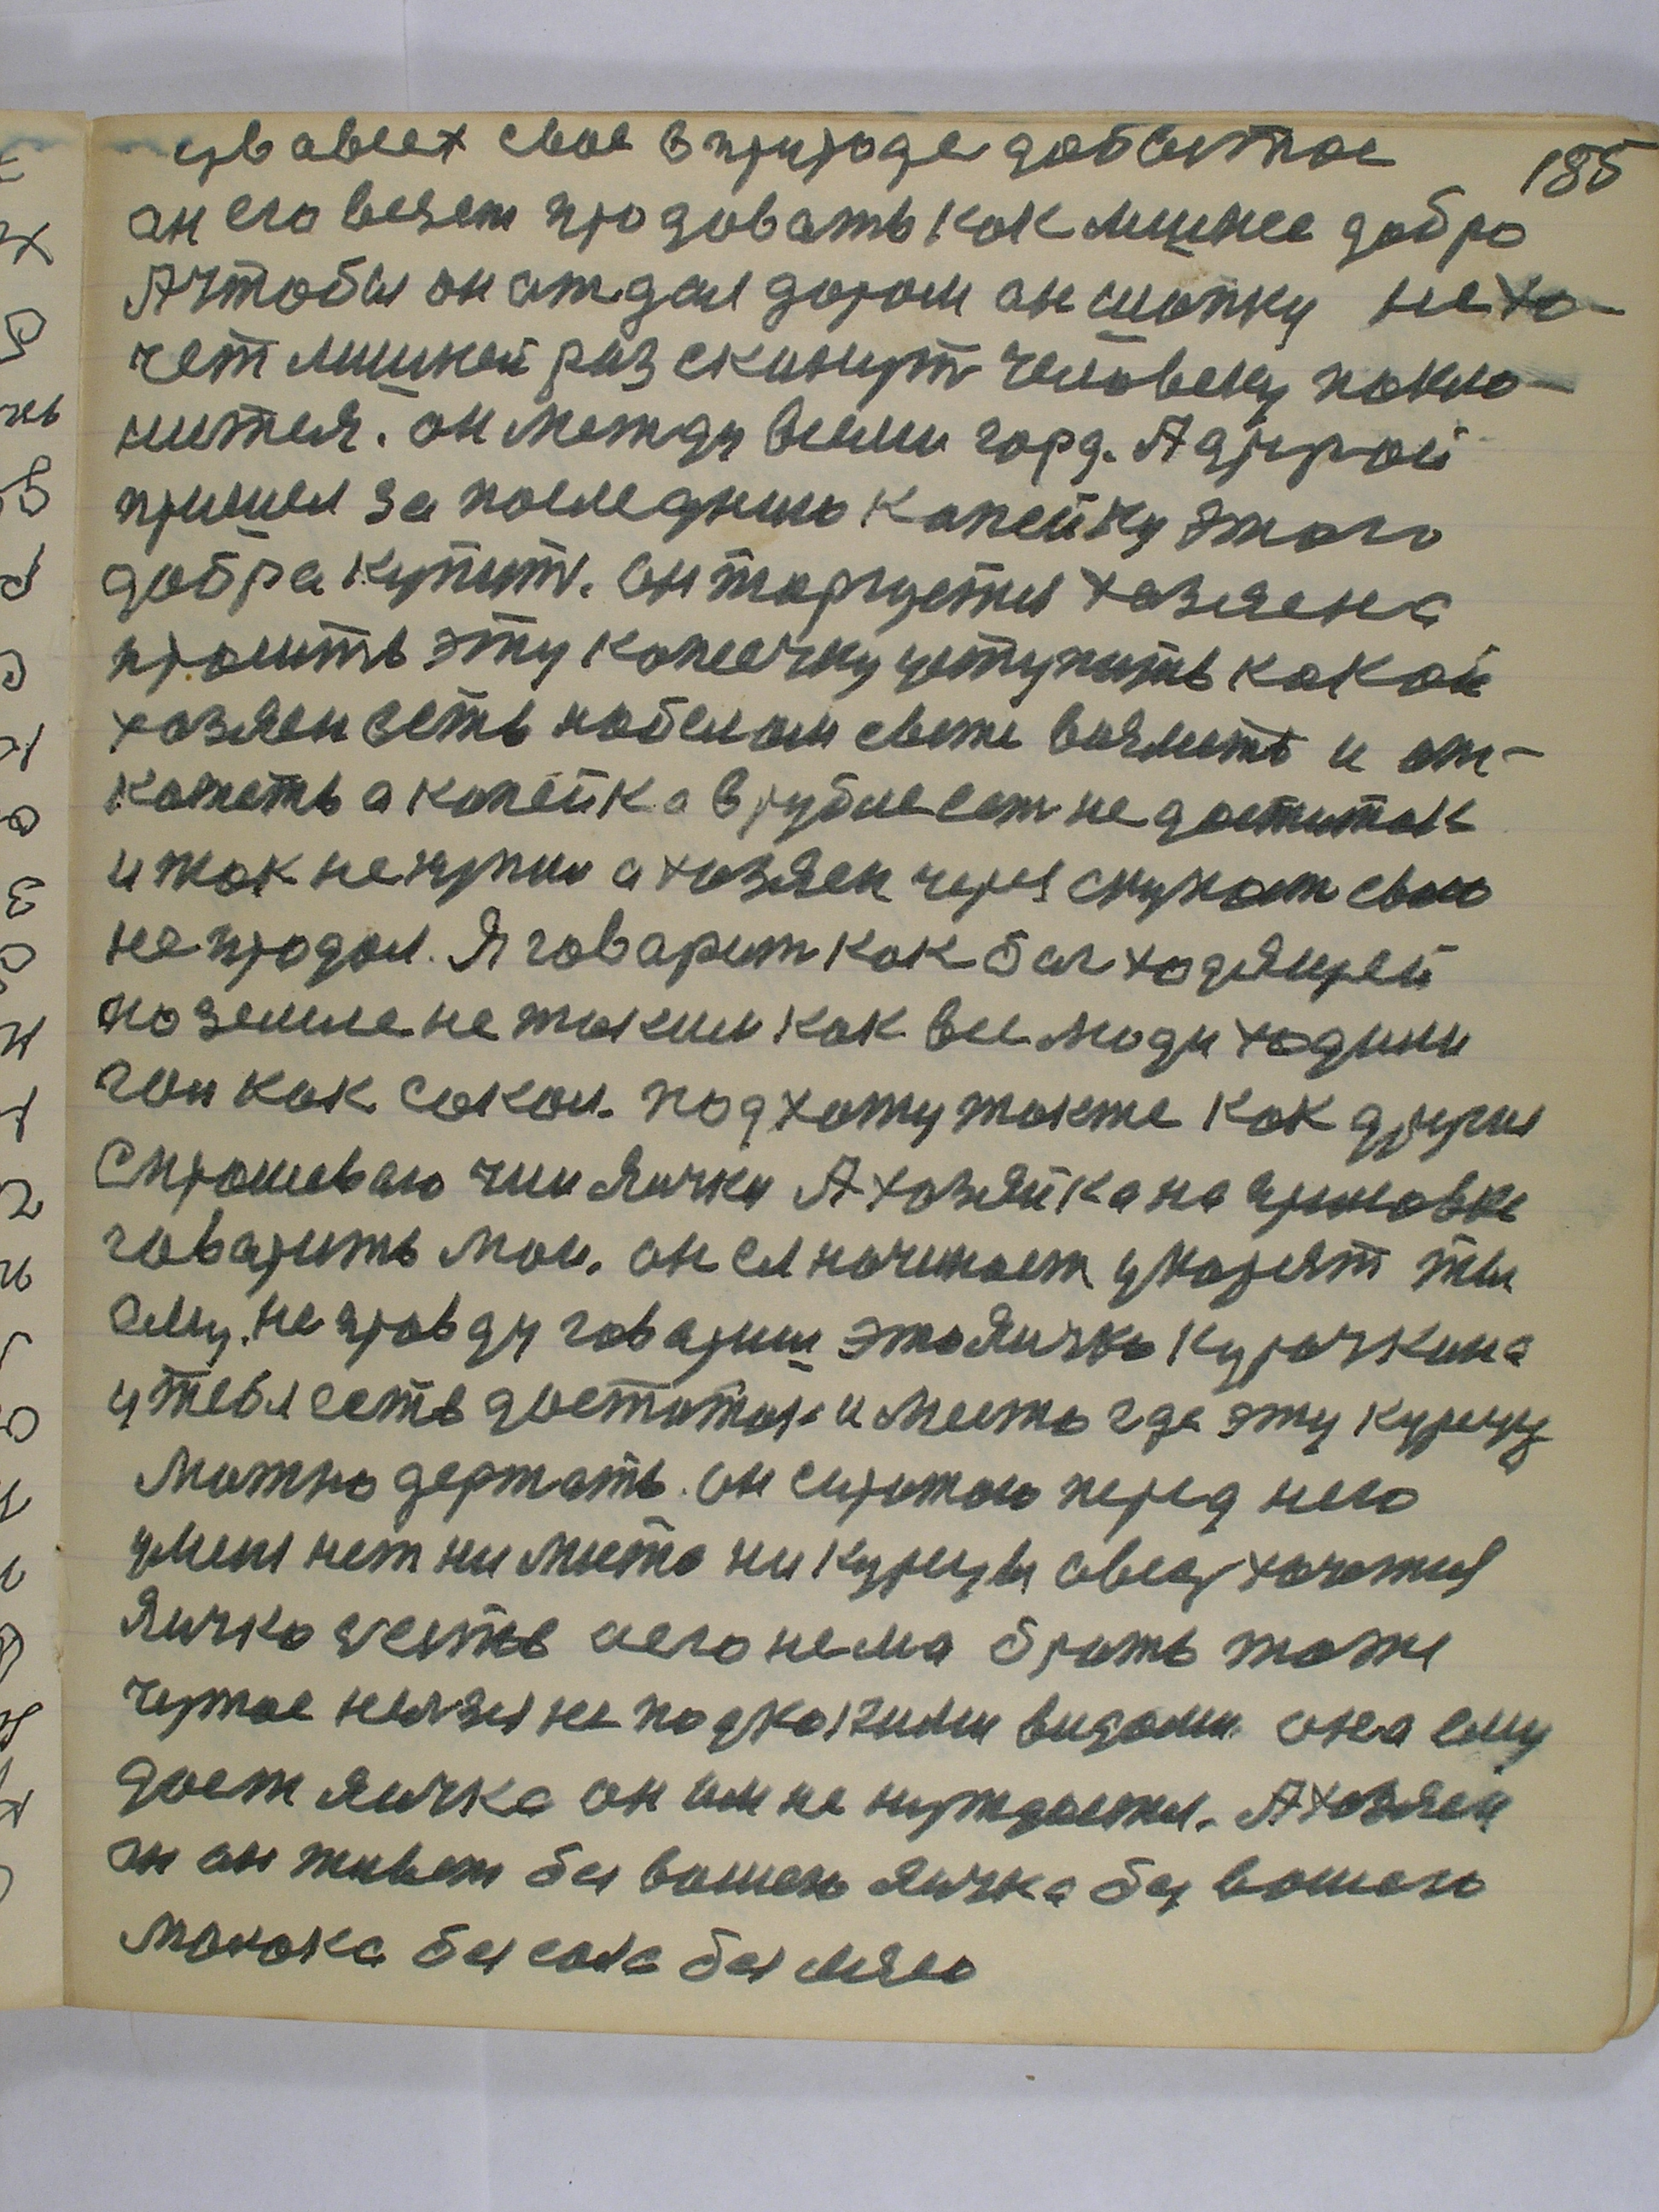 185
у всех свое в природе добытое
он его везет продовать как лишнее добро
А чтобы он отдал даром он шапку не хо-
чет лишней раз скинут человеку покло-
нится. он между всеми горд. А другой
пришел за последнию копейку этого
добра купит. он торгуется хозяена
просить эту копеечку уступить какой
хозяен есть на белом свете возметь и от-
кажеть а копейка в рубле есть не достаток
и так не купил а хозяен через скупост свою
не продал. Я говарит как был ходящей
по земле не таким как все люди ходили
гол как сокол. подхожу также как другия
Спрошеваю чии яички А хозяйка на
говарить мои. он ея начинает укорят ты
ему не правду говариш это яичко курочкина
у тебя есть достаток и место где эту курицу
можно держать. он сиротою перед нею
у меня нет ни места ни курицы а ведь хочется
яичко съесть а его нема брать тоже
чужое нельзя не под какими видами она ему
дает яичко он им не нуждается. А хозяен
он он живет без вашего яичка без вашего
молока без сала без мяса